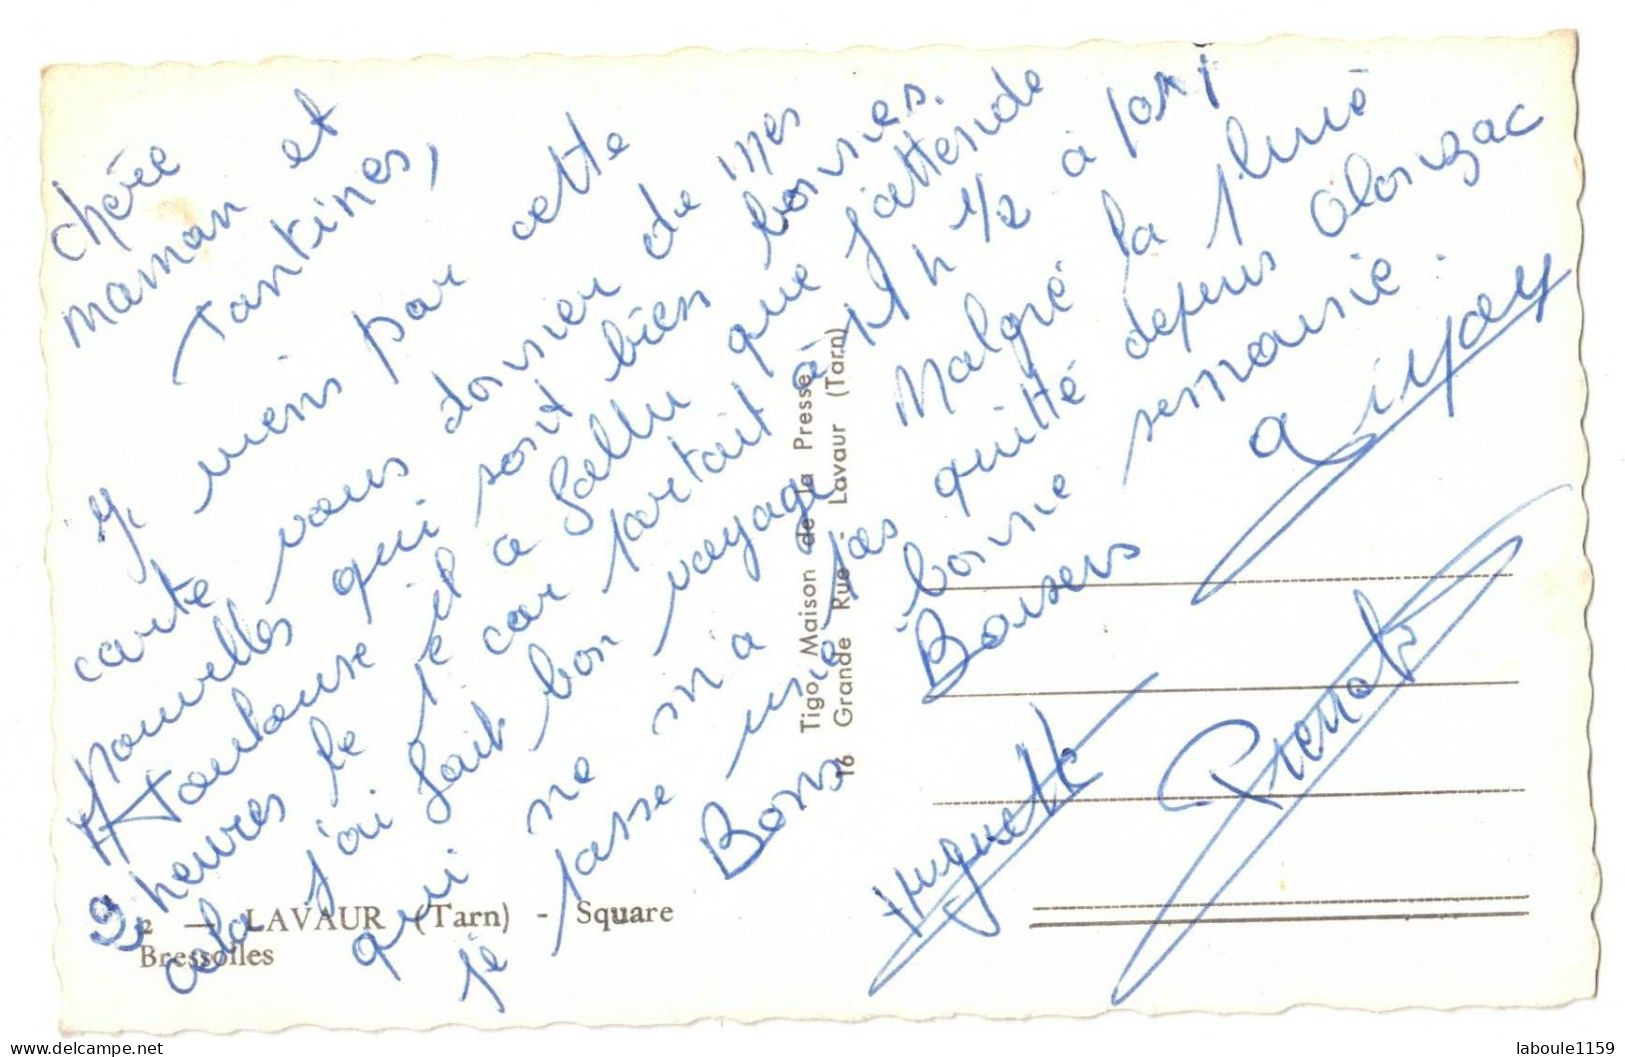 Chérie
maman et
Tantines,
Je viens par cette
carte vous donner de mes
nouvelles qui sont bien bonnes.
A Toulouse il a fallu que j'attende
2 heures le car partait à 11 h 1/2 à part
cela j'ai fait bon voyage Malgré la pluie
qui ne m'a pas quitté depuis Olonzac
je passe une bonne semaine.
Bons Baisers
Huguette Pierrot
2 — LAVAUR (Tarn) - Square
Bressolles
Tigo Maison de la Presse
16 Grande Rue - Lavaur (Tarn)
delcampe.net
laboule1159